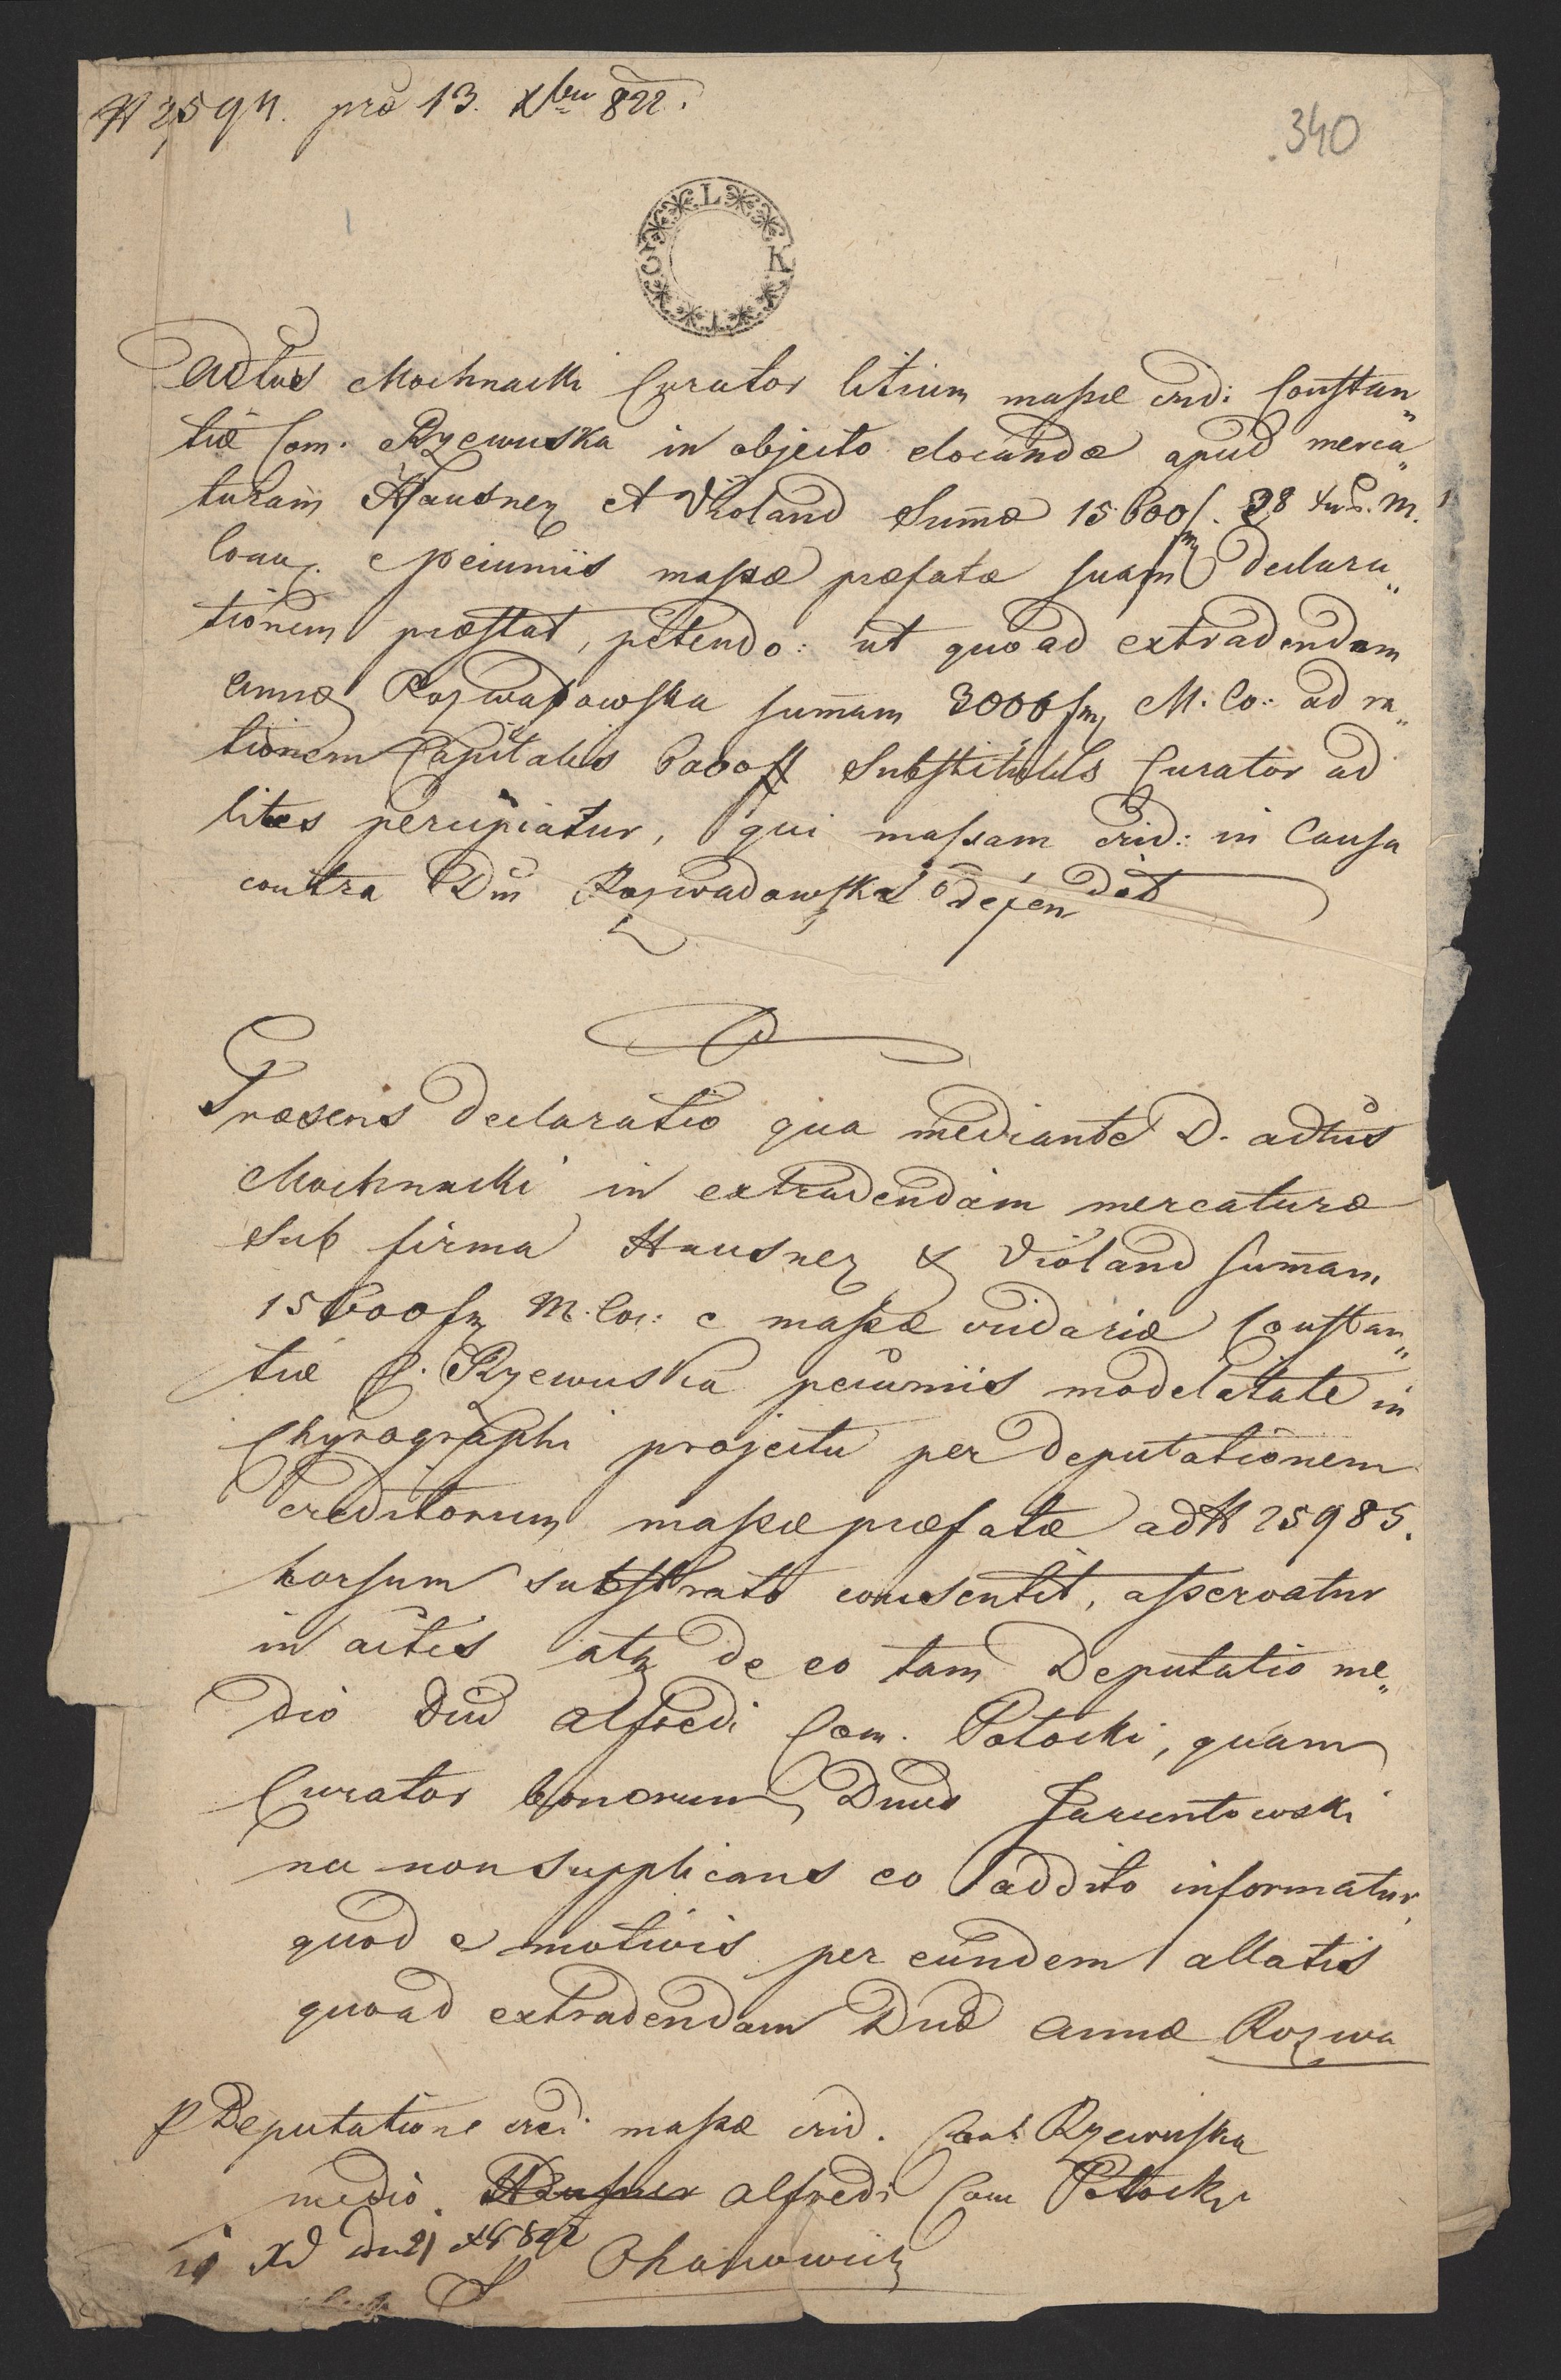 N 2594. pro 13. Xbris 822.
340
L K I G
Adtus Mochnacki Curator litium massæ crid: Constan„
tiæ Com. Rzewuska in objecto elocandæ apud merca„
turam Hausner et Violand Summæ 15600 f. 38 xr. M.
Conv. e pecuniis massæ præfatæ suam declara„
tionem præstat, petendo: ut quoad extradendam
Annæ Rozwadowska summam 3000 fr M. Co: ad ra„
tionem Capitalis 6000 # Substitutus Curator ad
lites percipiatur, qui massam crid: in Causa
contra Dm Rozwadowska defendat
Præsens declaratio qua mediante D. adtus
Mochnacki in extradendam mercaturæ
sub firma Hausner & Violand summam
15600 fr M. Co: e massæ cridariæ Constan„
tiæ C. Rzewuska pecuniis modalitate in
Chyrographi projectu per deputationem
creditorum massæ præfatæ ad N 25985.
horsum substrato consentit, asservatur
in actis atq de eo tam Deputatio me„
dio Dni Alfredi Com. Potocki, quam
Curator bonorum Dnus Jaruntowski
nec non supplicans eo addito informatur,
quod e motivis per eundem allatis
quoad extradendam Dnæ Annæ Rozwa
P Deputatione cred. massæ crid. Const Rzewuska
medio Alfredi Com Potocki
21 Xb 822
Ohanowicz